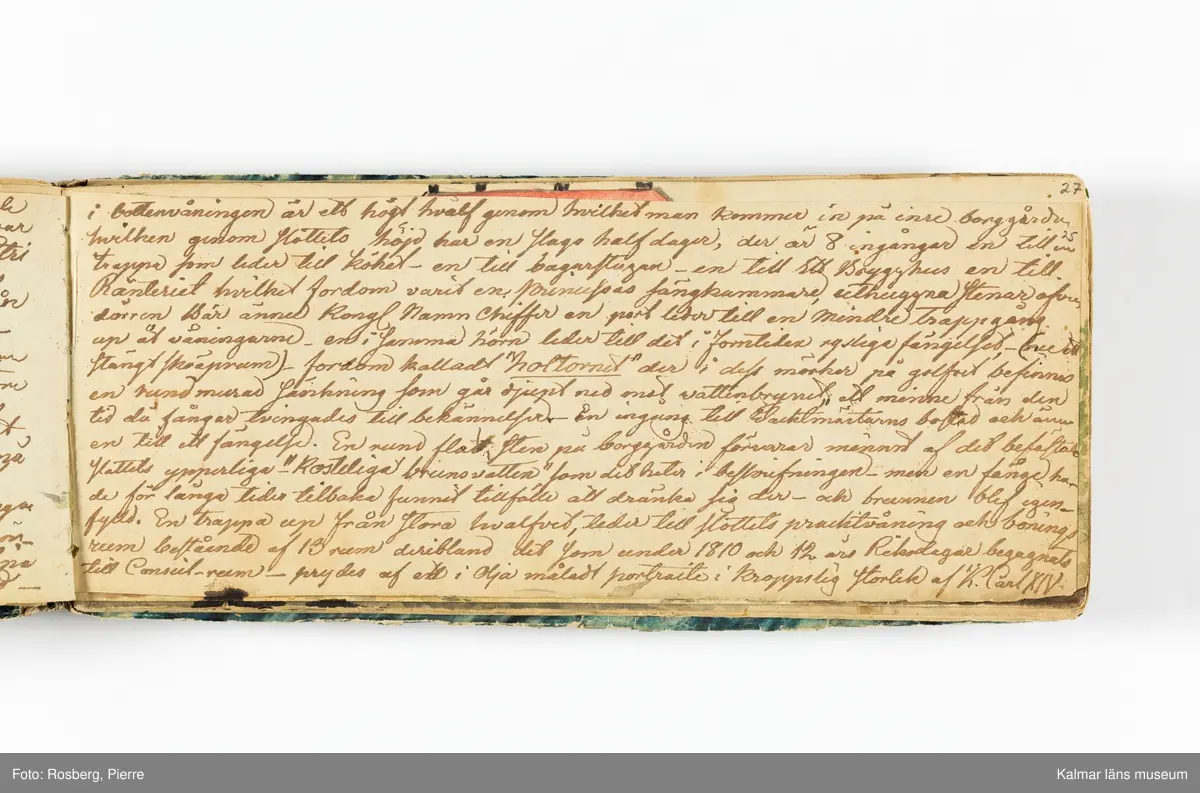 27
25
i bottenvåningen är ett högt hvalf genom hvilket man kommer in på inre borggården
hvilken genom slottets höjd har en slags half dager, der är 8 ingångar en till en
trappa som leder till köket – en till bagarstugan – en till ett Brygghus en till
Ränteriet hvilket fordom varit en Princessas sängkammare, uthuggna stenar ofvan
dörren bär ännu Kongl Namn Chiffer en port leder till en mindre trappgång
up åt våningarne – en i samma hörn leder till det i forntiden rysliga fängelset, (nu ett
stängt skräprum) – fordom kalladt "Rottornet" der i dess mörker på golfvet befinnes
en rundmurad sänkning som går djupt ned mot vattenbrynet, ett minne från den
tid då fångar tvingades till bekännelser – En ingång till Vacktmästarns bostad och ännu
en till ett fängelse. En rund flat sten på borggården förvarar minnet af det befästade
slottets ypperliga "Kosteliga brunsvatten" som det heter i beskrifningen – men en fånge ha-
de för långa tider tilbaka funnit tillfälle att dränka sig der – och brunnen blef igen-
fylld. En trappa up från stora hvalfvet, leder till slottets practtvåning och bonings
rum bestående af 13 rum deribland det som under 1810 och 12 års Riksdagar begagnats
till Conseil-rum – prydes af ett i olja måladt portraite i kroppslig storlek af K. Carl XIV.
Foto: Rosberg, Pierre
Kalmar läns museum